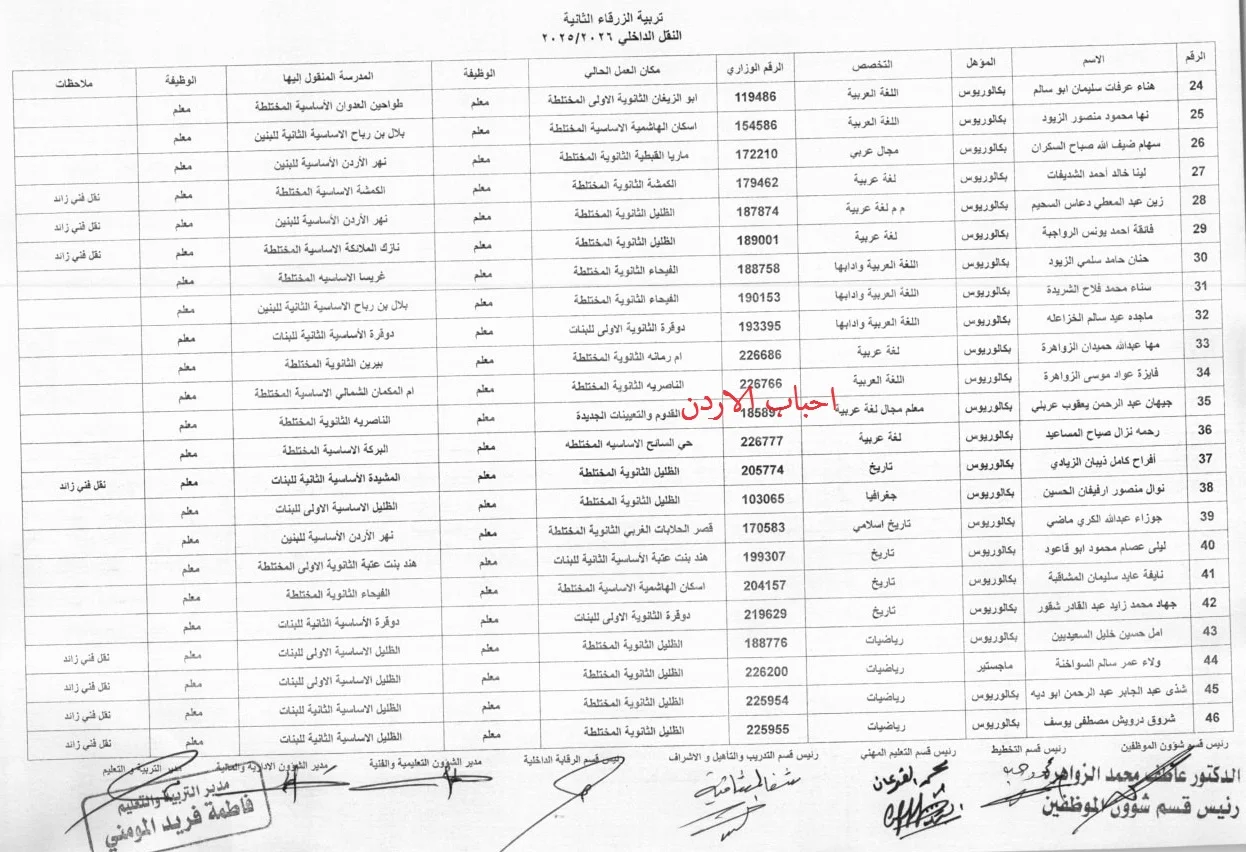 تربية الزرقاء الثانية
النقل الداخلي ٢٠٢٥/٢٠٢٦
الرقم الاسم المؤهل التخصص الرقم الوزاري مكان العمل الحالي الوظيفة المدرسة المنقول إليها الوظيفة ملاحظات
24 هناء عرفات سليمان ابو سالم بكالوريوس اللغة العربية 119486 ابو الزيغان الثانوية الاولى المختلطة معلم طواحين العدوان الأساسية المختلطة معلم
25 نها محمود منصور الزيود بكالوريوس اللغة العربية 154586 اسكان الهاشمية الاساسية المختلطة معلم بلال بن رباح الاساسية الثانية للبنين معلم
26 سهام ضيف الله صباح السكران بكالوريوس مجال عربي 172210 ماريا القبطية الثانوية المختلطة معلم نهر الأردن الأساسية للبنين معلم
27 لينا خالد أحمد الشديفات بكالوريوس لغة عربية 179462 الكمشة الثانوية المختلطة معلم الكمشة الاساسية المختلطة معلم نقل فني زائد
28 زين عبد المعطي دعاس السحيم بكالوريوس م م لغة عربية 187874 الظليل الثانوية المختلطة معلم نهر الأردن الأساسية للبنين معلم نقل فني زائد
29 فائقة احمد يونس الرواجبة بكالوريوس لغة عربية 189001 الظليل الثانوية المختلطة معلم نازك الملائكة الاساسية المختلطة معلم نقل فني زائد
30 حنان حامد سلمي الزيود بكالوريوس اللغة العربية وادابها 188758 الفيحاء الثانوية المختلطة معلم غريسا الاساسيه المختلطة معلم
31 سناء محمد فلاح الشريدة بكالوريوس اللغة العربية وادابها 190153 الفيحاء الثانوية المختلطة معلم بلال بن رباح الاساسية الثانية للبنين معلم
32 ماجده عيد سالم الخزاعله بكالوريوس اللغة العربية وادابها 193395 دوقرة الثانوية الاولى للبنات معلم دوقرة الأساسية الثانية للبنات معلم
33 مها عبدالله حميدان الزواهرة بكالوريوس لغة عربية 226686 ام رمانه الثانوية المختلطة معلم بيرين الثانوية المختلطة معلم
34 فايزة عواد موسى الزواهرة بكالوريوس اللغة العربية 226766 الناصريه الثانوية المختلطة معلم ام المكمان الشمالي الاساسية المختلطة معلم
35 جيهان عبد الرحمن يعقوب عربلي بكالوريوس معلم مجال لغة عربية 185897 القدوم والتعيينات الجديدة معلم الناصريه الثانوية المختلطة معلم
احباب الاردن
36 رحمه نزال صياح المساعيد بكالوريوس لغة عربية 226777 حي السائح الاساسيه المختلطه معلم البركة الاساسية المختلطة معلم
37 أفراح كامل ذيبان الزيادي بكالوريوس تاريخ 205774 الظليل الثانوية المختلطة معلم المشيدة الأساسية الثانية للبنات معلم نقل فني زائد
38 نوال منصور ارفيفان الحسين بكالوريوس جغرافيا 103065 الظليل الثانوية المختلطة معلم الظليل الاساسية الاولى للبنات معلم
39 جوزاء عبدالله الكري ماضي بكالوريوس تاريخ اسلامي 170583 قصر الحلابات الغربي الثانوية المختلطة معلم نهر الأردن الأساسية للبنين معلم
40 ليلى عصام محمود ابو قاعود بكالوريوس تاريخ 199307 هند بنت عتبة الأساسية الثانية للبنات معلم هند بنت عتبة الثانوية الاولى المختلطة معلم
41 نايفة عايد سليمان المشاقبة بكالوريوس تاريخ 204157 اسكان الهاشمية الاساسية المختلطة معلم الفيحاء الثانوية المختلطة معلم
42 جهاد محمد زايد عبد القادر شقور بكالوريوس تاريخ 219629 دوقرة الثانوية الاولى للبنات معلم دوقرة الأساسية الثانية للبنات معلم
43 امل حسين خليل السعيديين بكالوريوس رياضيات 188776 الظليل الثانوية المختلطة معلم الظليل الاساسية الاولى للبنات معلم نقل فني زائد
44 ولاء عمر سالم السواخنة ماجستير رياضيات 226200 الظليل الثانوية المختلطة معلم الظليل الاساسية الاولى للبنات معلم نقل فني زائد
45 شذى عبد الجابر عبد الرحمن ابو ديه بكالوريوس رياضيات 225954 الظليل الثانوية المختلطة معلم الظليل الاساسية الثانية للبنات معلم نقل فني زائد
46 شروق درويش مصطفى يوسف بكالوريوس رياضيات 225955 الظليل الثانوية المختلطة معلم الظليل الاساسية الثانية للبنات معلم نقل فني زائد
رئيس قسم شؤون الموظفين رئيس قسم التخطيط رئيس قسم التعليم المهني رئيس قسم التدريب والتأهيل و الاشراف رئيس قسم الرقابة الداخلية مدير الشؤون التعليمية والفنية مدير الشؤون الادارية والمالية مدير التربية و التعليم
الدكتور عاطف محمد الزواهرة
رئيس قسم شؤون الموظفين
مدير التربية والتعليم
فاطمة فريد المومني